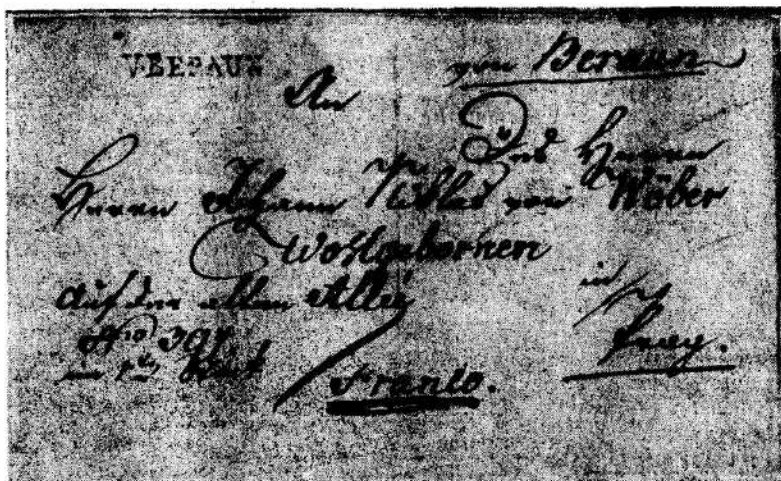 V.BERAUN
von Beraun
An
Des Herrn
Herrn Johann Niklas von Weber
Wohlgebornen
auf der alten Allee
No 397
im Stock
in
Prag.
Franco.